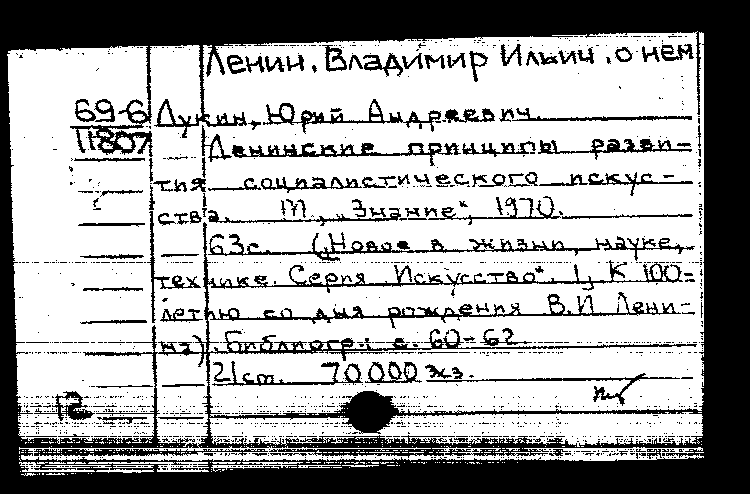 Ленин, Владимир Ильич, о нем
69-6 Лукин, Юрий Андреевич.
11807 Ленинские принципы разви-
тия социалистического искус-
ства. М., „Знание", 1970.
63с. („Новое в жизни, науке,
технике. Серия „Искусство". 1, К 100-
летию со дня рождения В.И Лени-
на). Библиогр.: с. 60-62.
21см. 70000 экз.
12